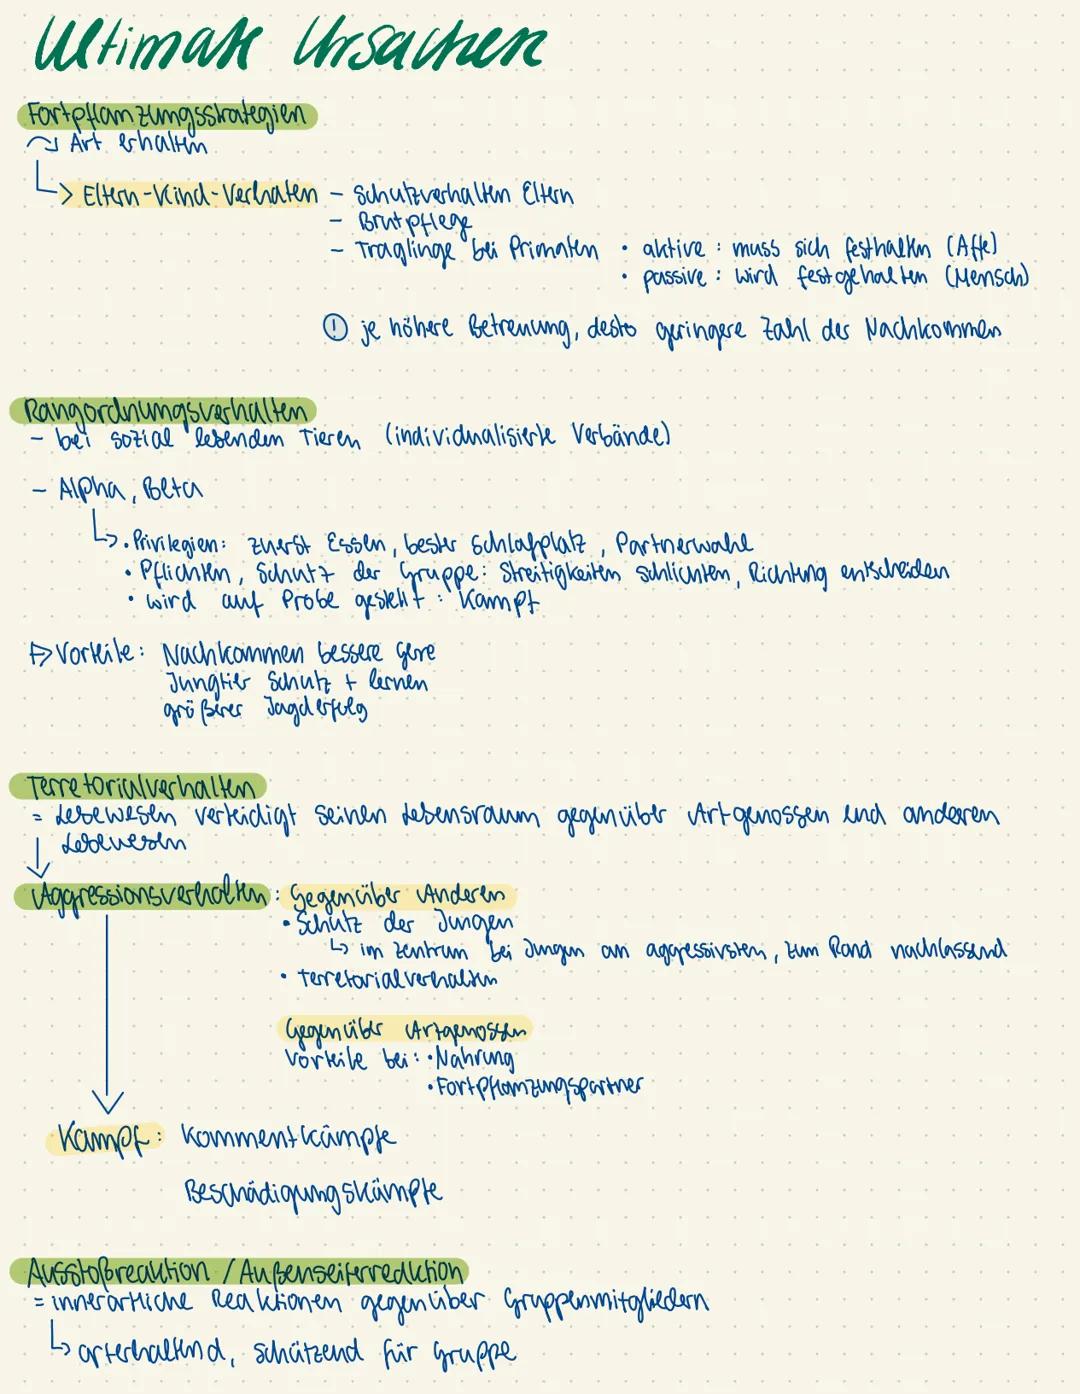 Ultimate Ursachen
Fortpflanzungsstrategien
↷ Art erhalten
↳ Eltern-Kind-Verhaten - Schutzverhalten Eltern
- Brutpflege
- Traglinge bei Primaten • aktive: muss sich festhalten (Affe)
• passive: wird festgehalten (Mensch)
! je höhere Betreuung, desto geringere Zahl der Nachkommen
Rangordnungsverhalten
- bei sozial lebenden Tieren (individualisierte Verbände)
- Alpha, Beta
↳ • Privilegien: zuerst Essen, bester Schlafplatz, Partnerwahl
• Pflichten, Schutz der Gruppe: Streitigkeiten schlichten, Richtung entscheiden
• wird auf Probe gestellt: Kampf
⇒ Vorteile: Nachkommen bessere Gene
Jungtier Schutz + lernen
größerer Jagderfolg
Terretorialverhalten
= Lebewesen verteidigt seinen Lebensraum gegenüber Artgenossen und anderen
↓ Lebewesen
Aggressionsverhalten: Gegenüber Anderen
• Schutz der Jungen
↳ im Zentrum bei Jungen am aggressivsten, zum Rand nachlassend
• Terretorialverhalten
Gegenüber Artgenossen
Vorteile bei: • Nahrung
• Fortpflanzungspartner
Kampf: Kommentkämpfe
Beschädigungskämpfe
Ausstoßreaktion / Außenseiterreaktion
= innerartliche Reaktionen gegenüber Gruppenmitgliedern
↳ arterhaltend, schützend für Gruppe